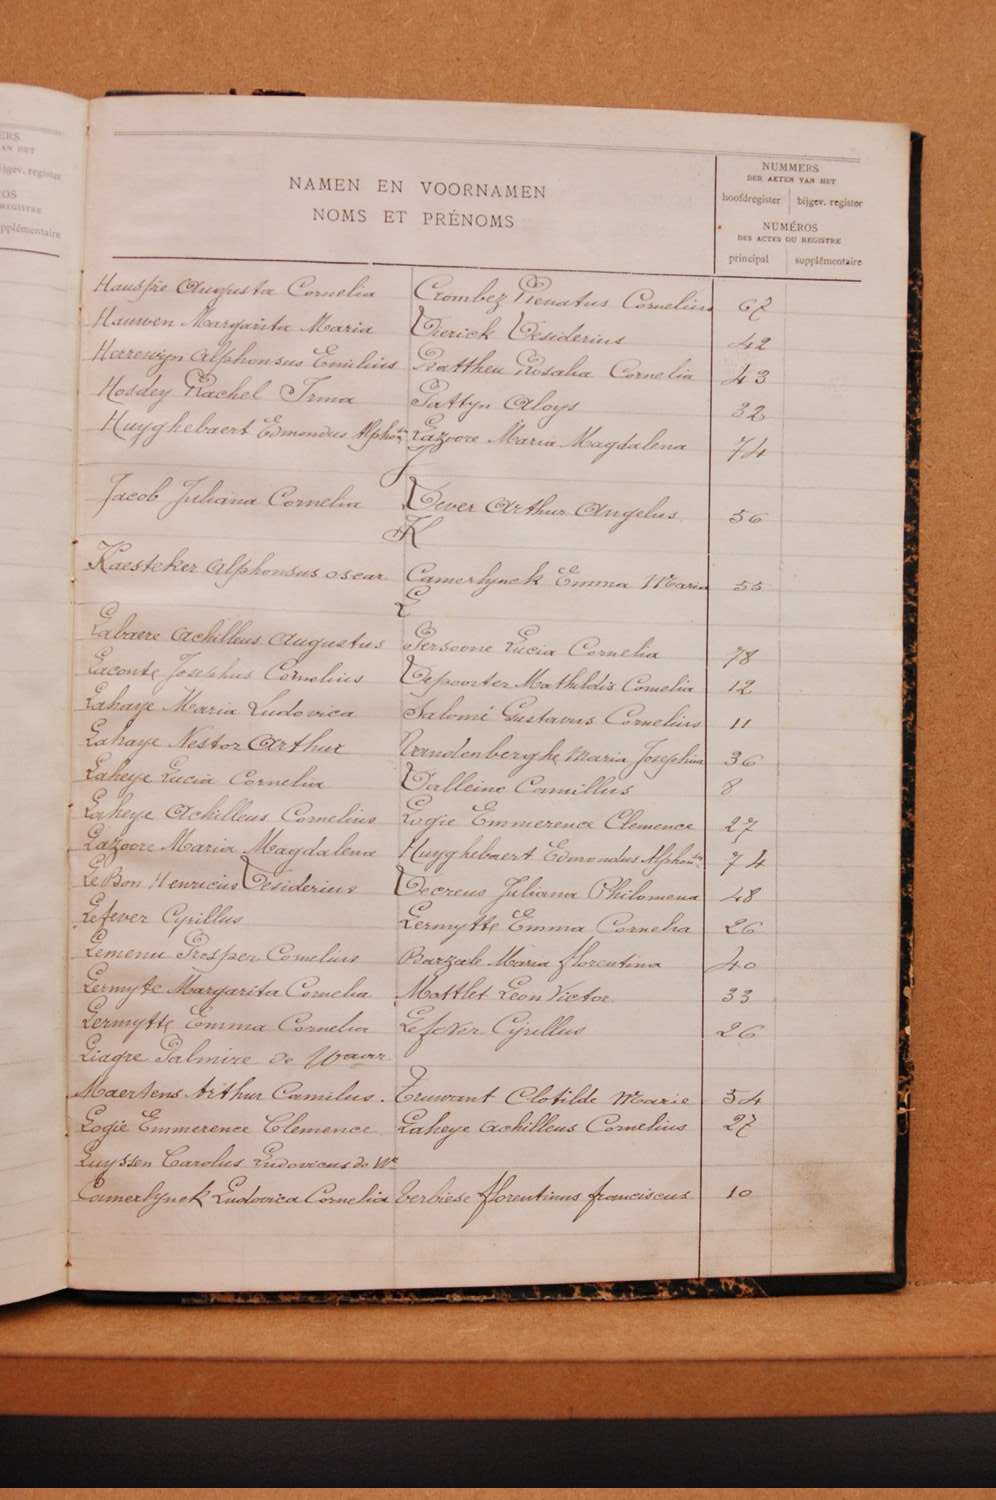 ERS
AN HET
bijgev. register
ROS
REGISTRE
supplémentaire
NAMEN EN VOORNAMEN
NOMS ET PRÉNOMS
NUMMERS
DER AKTEN VAN HET
hoofdregister bijgev. register
NUMÉROS
DES ACTES DU REGISTRE
principal supplémentaire
Hauspie Augusta Cornelia Crombez Renatus Cornelius 67
Hauwen Margarita Maria Dierick Desiderius 42
Herrewijn Alphonsus Emilius Mattheu Rosalia Cornelia 43
Hosdey Rachel Irma Pattyn Aloys 32
Huyghebaert Edmondus Alphons Lazoore Maria Magdalena 74
J
Jacob Juliana Cornelia Dever Arthur Angelus 56
K
Kaesteker Alphonsus Oscar Camerlynck Emma Maria 55
L
Labaere Achilleus Augustus Persoone Lucia Cornelia 78
Laconte Josephus Cornelius Depoorter Mathildis Cornelia 12
Lahaye Maria Ludovica Salomé Gustavus Cornelius 11
Lahaye Nestor Arthur Vandenberghe Maria Josephina 36
Laheye Lucia Cornelia Dalleine Camillus 8
Laheye Achilleus Cornelius Logie Emmerence Clemence 27
Lazoore Maria Magdalena Huyghebaert Edmondus Alphons 74
Le Bon Henricus Desiderius Decreus Juliana Philomena 48
Lefever Cyrillus Lermytte Emma Cornelia 26
Lemenu Prosper Cornelius Barzale Maria Florentina 40
Lermyte Margarita Cornelia Mattlet Leon Victor 33
Lermytte Emma Cornelia Lefever Cyrillus 26
Liagre Palmire de
Maertens Arthur Camilus Truwant Clotilde Marie 54
Logie Emmerence Clemence Laheye Achilleus Cornelius 27
Luyssen Carolus Ludovicus de Wr
Camerlynck Ludovica Cornelia Verbiese Florentinus Franciscus 10